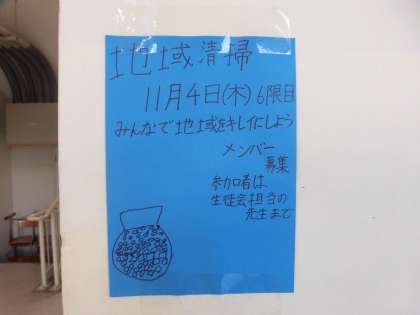 地域清掃
11月4日(木)6限目
みんなで地域をキレイにしよう
メンバー
募集
参加者は
生徒会担当の
先生まで